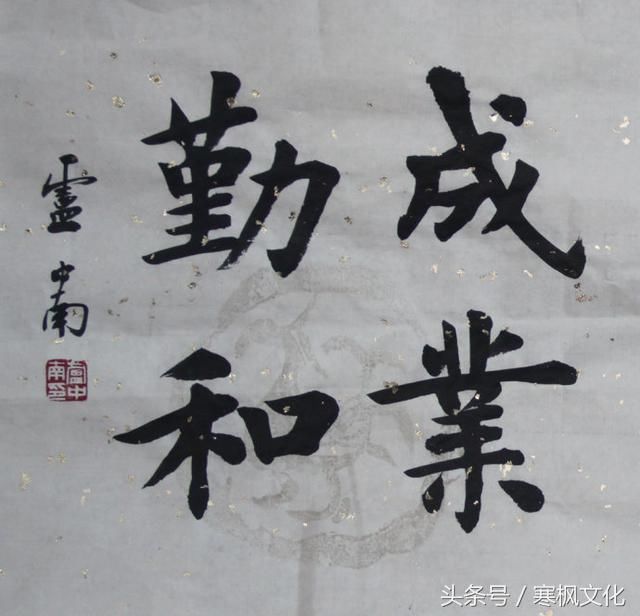 成業
勤和
盧中南
盧中南印
头条号 / 寒枫文化